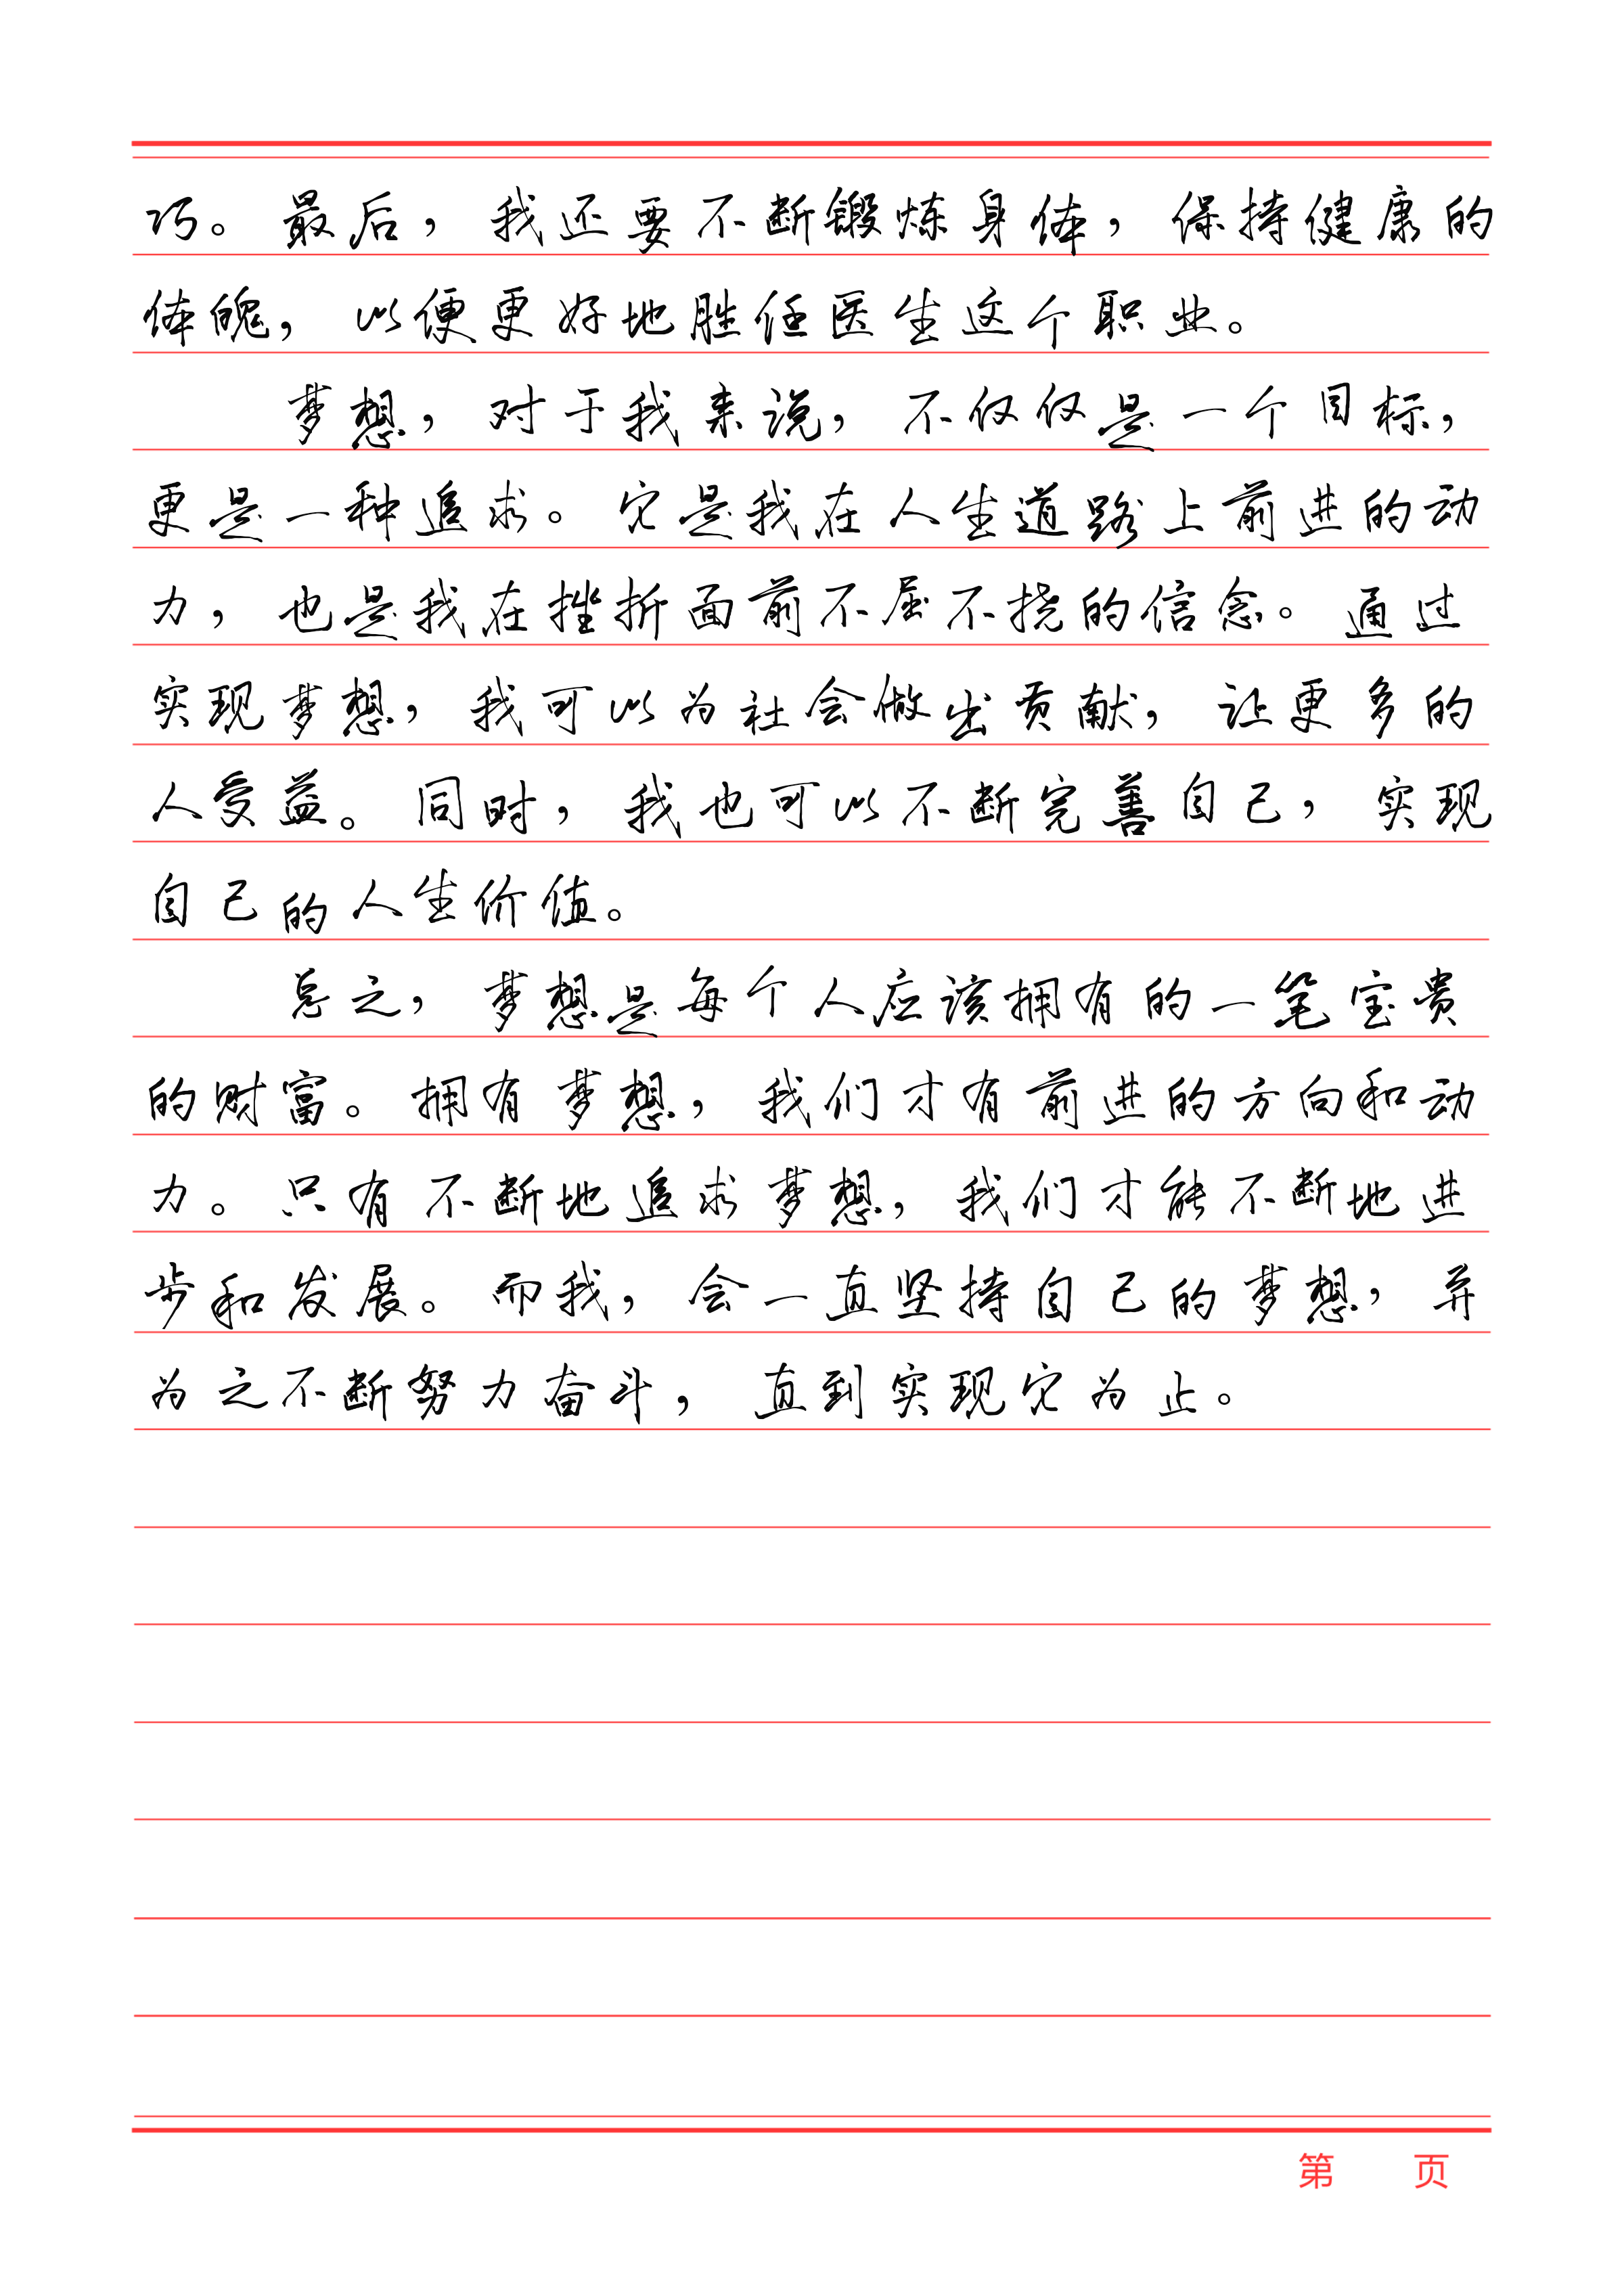 巧。最后，我还要不断锻炼身体，保持健康的
体魄，以便更好地胜任医生这个职业。
梦想，对于我来说，不仅仅是一个目标，
更是一种追求。它是我在人生道路上前进的动
力，也是我在挫折面前不屈不挠的信念。通过
实现梦想，我可以为社会做出贡献，让更多的
人受益。同时，我也可以不断完善自己，实现
自己的人生价值。
总之，梦想是每个人应该拥有的一笔宝贵
的财富。拥有梦想，我们才有前进的方向和动
力。只有不断地追求梦想，我们才能不断地进
步和发展。而我，会一直坚持自己的梦想，并
为之不断努力奋斗，直到实现它为止。
第 页